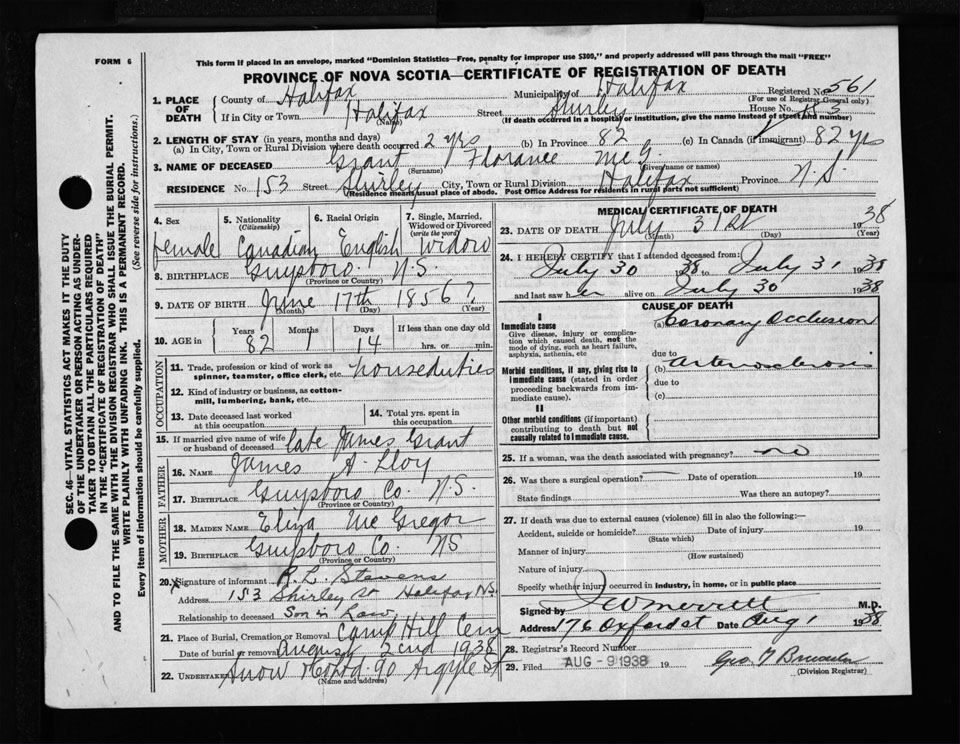 FORM 6
This form if placed in an envelope, marked "Dominion Statistics—Free, penalty for improper use $300," and properly addressed will pass through the mail "FREE"
PROVINCE OF NOVA SCOTIA—CERTIFICATE OF REGISTRATION OF DEATH
1. PLACE OF DEATH
County of Halifax Municipality of Halifax Registered No. 561
(For use of Registrar General only)
If in City or Town Halifax Street Shirley House No. 153
(Name) (If death occurred in a hospital or institution, give the name instead of street and number)
2. LENGTH OF STAY (in years, months and days)
(a) In City, Town or Rural Division where death occurred 2 yrs (b) In Province 82 (c) In Canada (if immigrant) 82 yrs
3. NAME OF DECEASED Grant Florance Mc G.
(Surname) (Given name or names)
RESIDENCE No. 153 Street Shirley City, Town or Rural Division Halifax Province N.S.
(Residence means usual place of abode. Post Office Address for residents in rural parts not sufficient)
4. Sex female
5. Nationality (Citizenship) Canadian
6. Racial Origin English
7. Single, Married, Widowed or Divorced (write the word) Widow
8. BIRTHPLACE Guysboro. N.S.
(Province or Country)
9. DATE OF BIRTH June 17th 1856?
(Month) (Day) (Year)
10. AGE in Years 82 Months 1 Days 14 If less than one day old hrs. or min.
OCCUPATION
11. Trade, profession or kind of work as spinner, teamster, office clerk, etc. houseduties
12. Kind of industry or business, as cotton-mill, lumbering, bank, etc.
13. Date deceased last worked at this occupation
14. Total yrs. spent in this occupation
15. If married give name of wife or husband of deceased late James Grant
FATHER
16. NAME James A. Lloy
17. BIRTHPLACE Guysboro Co. N.S.
(Province or Country)
MOTHER
18. MAIDEN NAME Eliza Mc Gregor
19. BIRTHPLACE Guysboro Co. NS
(Province or Country)
20. X Signature of informant R. L. Stevens
Address 153 Shirley St Halifax N.S.
Relationship to deceased Son in Law
21. Place of Burial, Cremation or Removal Camp Hill Cem
Date of burial or removal August 2nd 1938
22. UNDERTAKER Snow & Co Ltd. 90 Argyle St
(Name and address)
MEDICAL CERTIFICATE OF DEATH
23. DATE OF DEATH July 31st 1938
(Month) (Day) (Year)
24. I HEREBY CERTIFY that I attended deceased from:
July 30 1938 to July 31 1938
and last saw her alive on July 30 1938
CAUSE OF DEATH
I
Immediate cause (a) Coronary Occlusion
Give disease, injury or complication which caused death, not the mode of dying, such as heart failure, asphyxia, asthenia, etc
due to
Morbid conditions, if any, giving rise to immediate cause (stated in order proceeding backwards from immediate cause).
(b) arteriosclerosis
due to
(c)
II
Other morbid conditions (if important) contributing to death but not causally related to immediate cause.
25. If a woman, was the death associated with pregnancy? no
26. Was there a surgical operation? — Date of operation 19
State findings Was there an autopsy?
27. If death was due to external causes (violence) fill in also the following:—
Accident, suicide or homicide? Date of injury 19
(State which)
Manner of injury
(How sustained)
Nature of injury
Specify whether injury occurred in industry, in home, or in public place
Signed by Merrett M.D.
Address 176 Oxford st Date Aug 1 1938
28. Registrar's Record Number
29. Filed AUG -9 1938 19
(Division Registrar)
SEC. 46—VITAL STATISTICS ACT MAKES IT THE DUTY
OF THE UNDERTAKER OR PERSON ACTING AS UNDER-
TAKER TO OBTAIN ALL THE PARTICULARS REQUIRED
IN THE "CERTIFICATE OF REGISTRATION OF DEATH"
AND TO FILE THE SAME WITH THE DIVISION REGISTRAR WHO SHALL ISSUE THE BURIAL PERMIT.
WRITE PLAINLY WITH UNFADING INK. THIS IS A PERMANENT RECORD.
Every item of information should be carefully supplied. (See reverse side for instructions.)